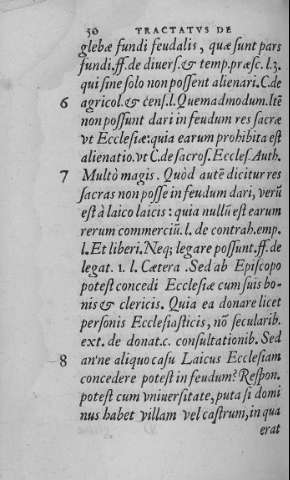 30 TRACTATVS DE
glebæ fundi feudalis, quæ sunt pars
fundi. ff. de diuers. & temp. præsc. l. 3.
qui sine solo non possent alienari. C. de
6 agricol. & cens. l. Quemadmodum. Itē
non possunt dari in feudum res sacræ
vt Ecclesiæ: quia earum prohibita est
alienatio. vt C. de sacros. Eccles. Auth.
7 Multò magis. Quòd autē dicitur res
sacras non posse in feudum dari, verū
est à laico laicis: quia nullū est earum
rerum commerciū. l. de contrah. emp.
l. Et liberi. Neq; legare possunt. ff. de
legat. 1. l. Cætera. Sed ab Episcopo
potest concedi Ecclesiæ cum suis bo-
nis & clericis. Quia ea donare licet
personis Ecclesiasticis, nō secularib.
ext. de donat. c. consultationib. Sed
8 an'ne aliquo casu Laicus Ecclesiam
concedere potest in feudum? Respon.
potest cum vniuersitate, puta si domi
nus habet villam vel castrum, in qua
erat